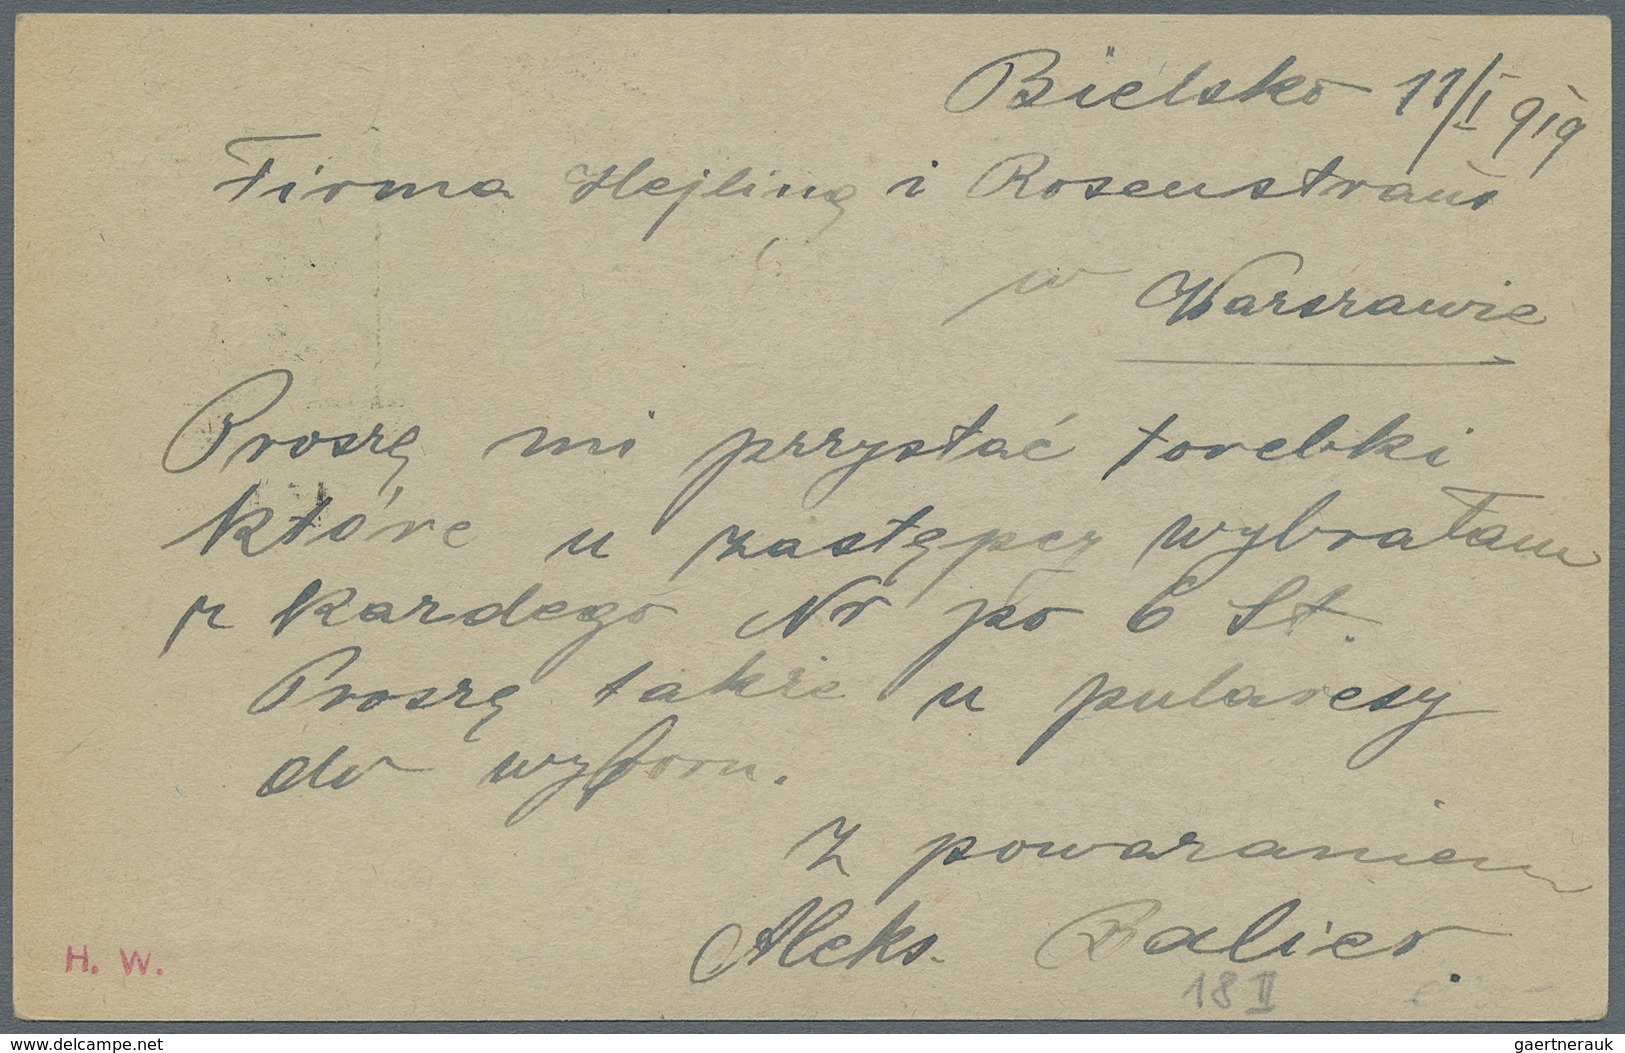 Bielsko 11/I 919
Firma Hejling i Rosenstraus
w Warszawie
Proszę mi przysłać torebki
które u zastępcy wybrałam
z kazdego Nr po 6 St.
Proszę także u pularesy
do wyboru.
Z powazaniem
Aleks. Balier.
H. W.
18 II
the-delcampe.net
gaertnerauk